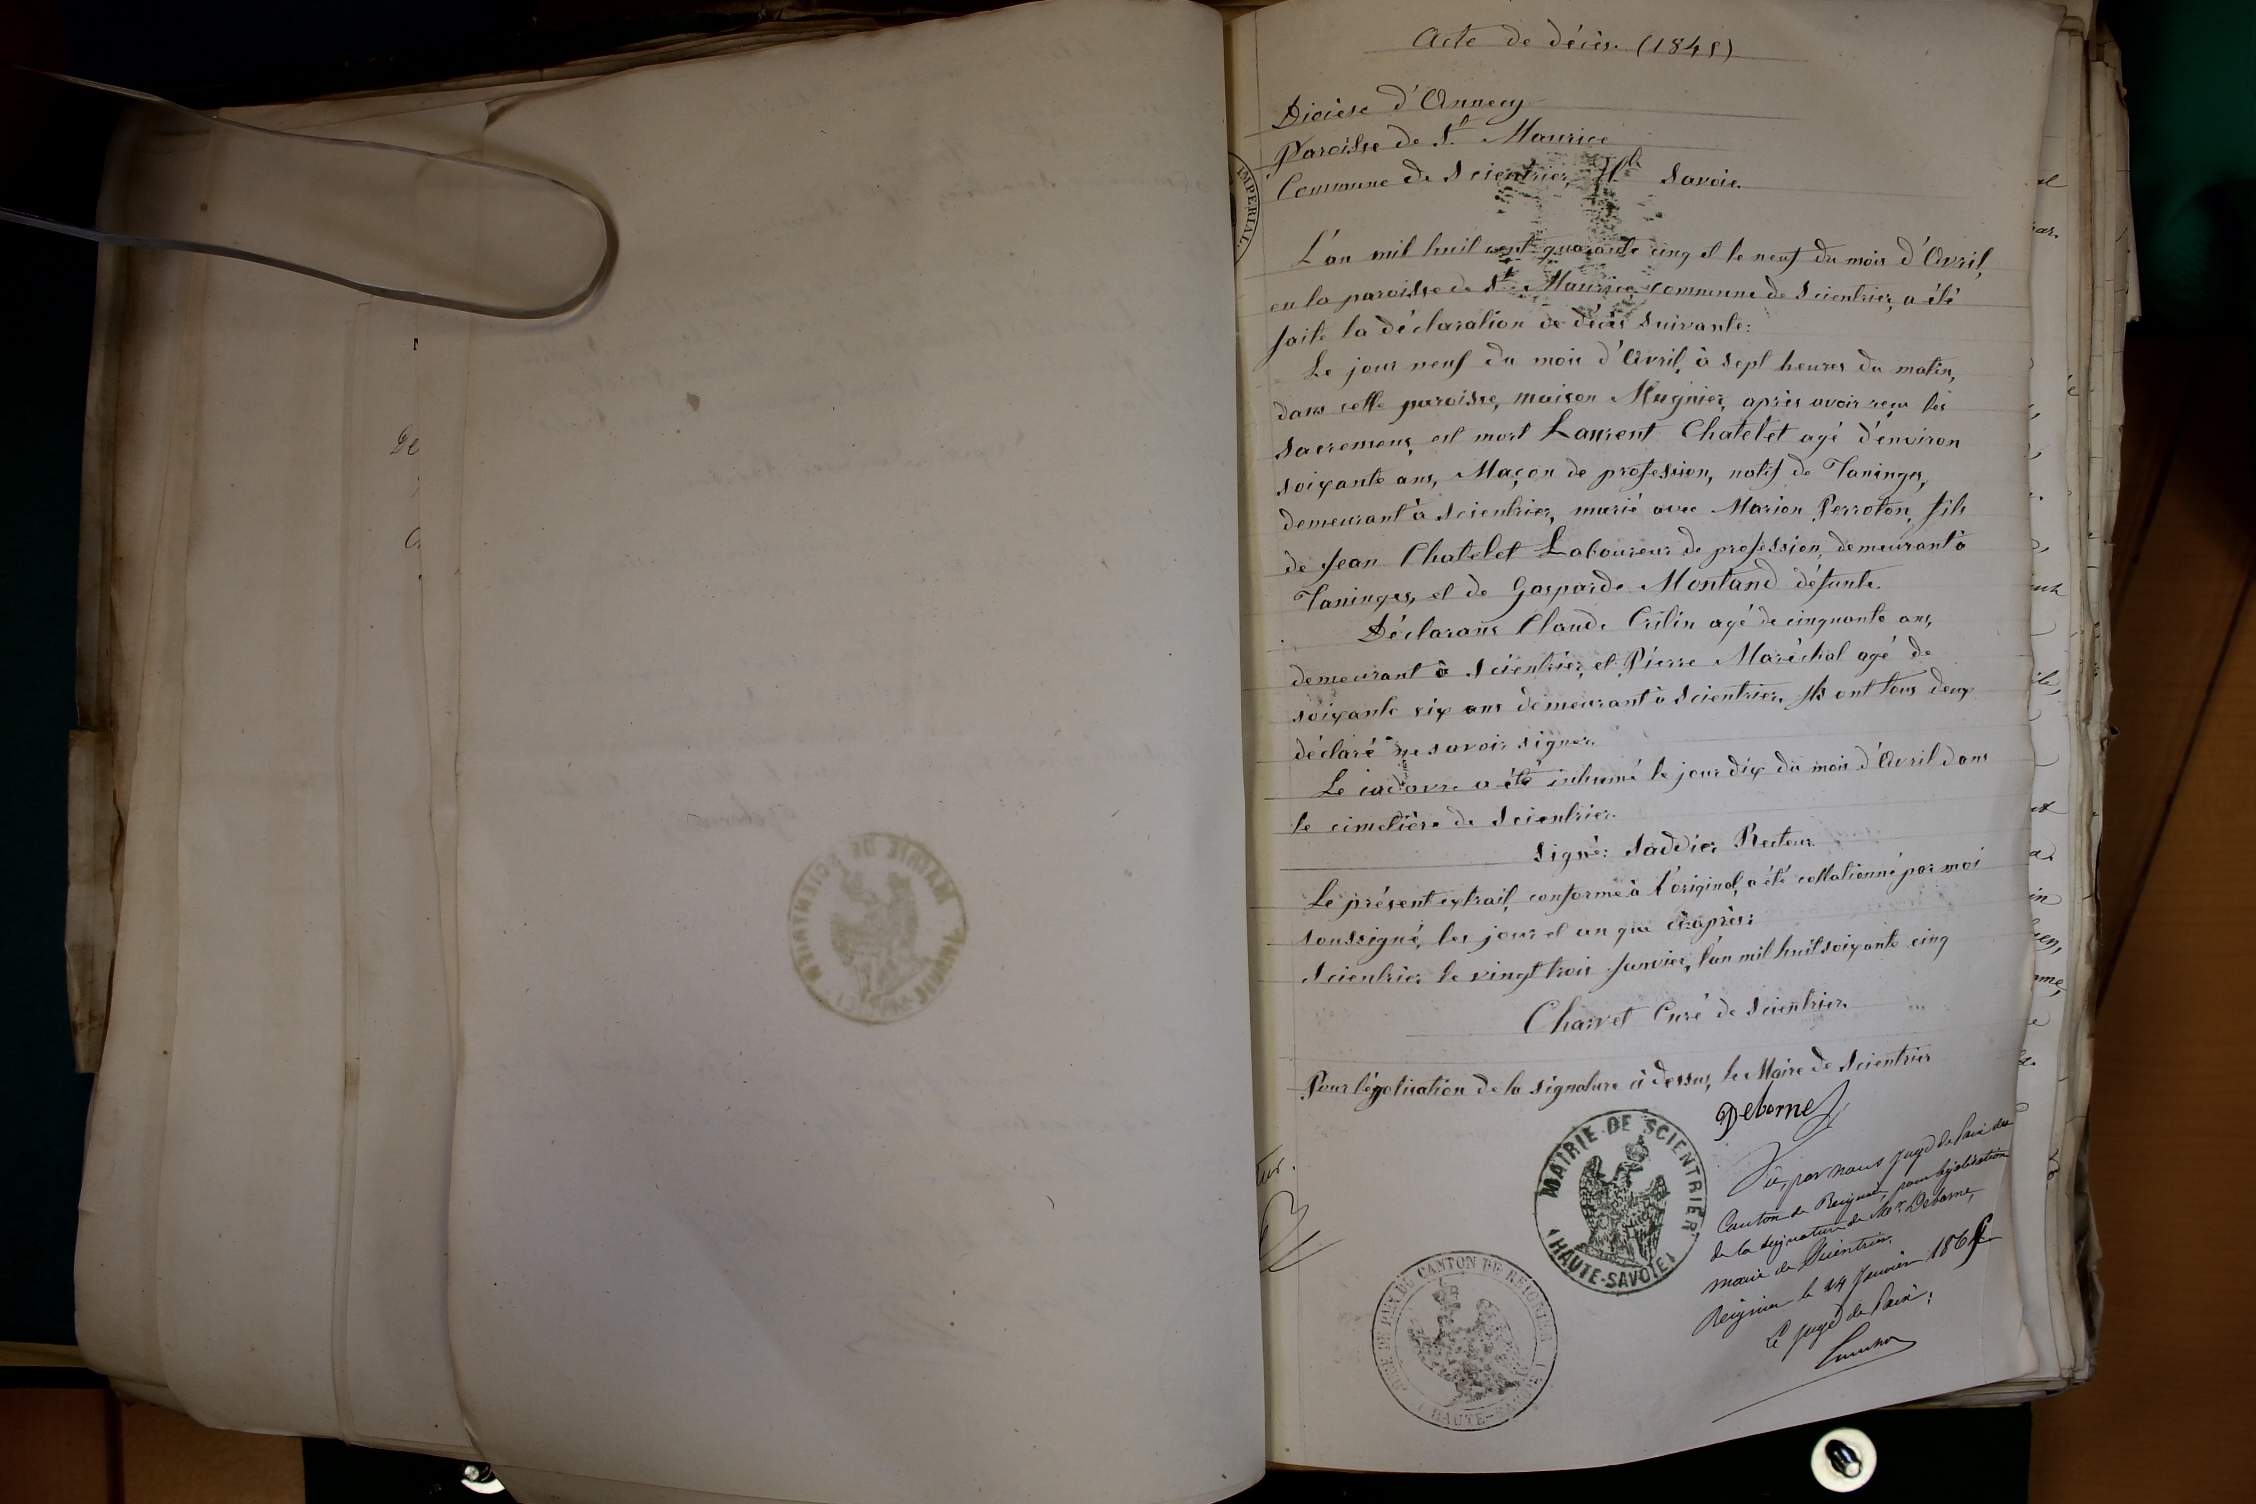 Acte de décès. (1845)
Diocèse d'Annecy
Paroisse de St. Maurice
Commune de Scientrier, Hte Savoie.
L'an mil huit cent quarante cinq et le neuf du mois d'Avril,
en la paroisse de St. Maurice, commune de Scientrier, a été
faite la déclaration de décès suivante:
Le jour neuf du mois d'Avril, à sept heures du matin,
dans cette paroisse, maison Mugnier, après avoir reçu les
sacremens, est mort Laurent Chatelet agé d'environ
soixante ans, Maçon de profession, natif de Taninges,
demeurant à Scientrier, marié avec Marion Perroton, fils
de Jean Chatelet Laboureur de profession, demeurant à
Taninges, et de Gasparde Montand défunte.
Déclarans Claude Crilin agé de cinquante ans,
demeurant à Scientrier, et Pierre Maréchal agé de
soixante six ans demeurant à Scientrier. Ils ont tous deux
déclaré ne savoir signer.
Le cadavre a été inhumé le jour dix du mois d'Avril dans
le cimetière de Scientrier.
Signé: Saddier Recteur.
Le présent extrait, conforme à l'original, a été collationné par moi
soussigné, les jour et an que ci-après:
Scientrier le vingt trois Janvier, l'an mil huit soixante cinq
Charvet Curé de Scientrier.
Pour légalisation de la signature ci dessus, le Maire de Scientrier
Deborne
MAIRIE DE SCIENTRIER
(HAUTE-SAVOIE)
Vu, par nous Juge de Paix du
Canton de Reignier, pour légalisation
de la signature de Mr Deborne,
maire de Scientrier.
Reignier le 24 Janvier 1865
Le Juge de Paix:
JUGE DE PAIX DU CANTON DE REIGNIER
(HAUTE-SAVOIE)
IMPERIAL.